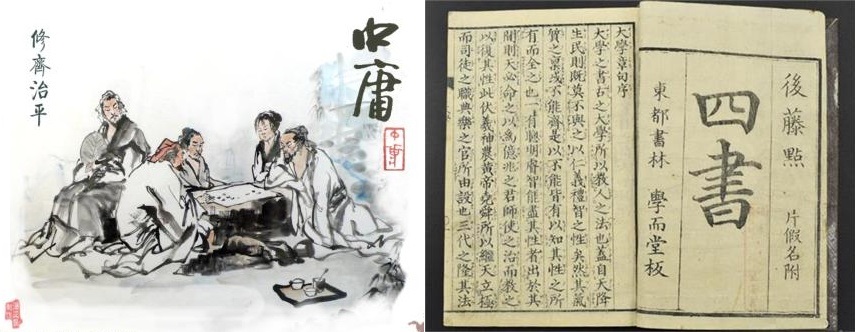 中庸
修齊治平
後藤點 片假名附
四書
東都書林 學而堂板
大學章句序
大學之書古之大學所以教人之法也蓋自天降
生民則既莫不與之以仁義禮智之性矣然其氣
質之稟或不能齊是以不能皆有以知其性之所
有而全之也一有聰明睿智能盡其性者出於其
間則天必命之以爲億兆之君師使之治而教之
以復其性此伏羲神農黃帝堯舜所以繼天立極
而司徒之職典樂之官所由設也三代之隆其法